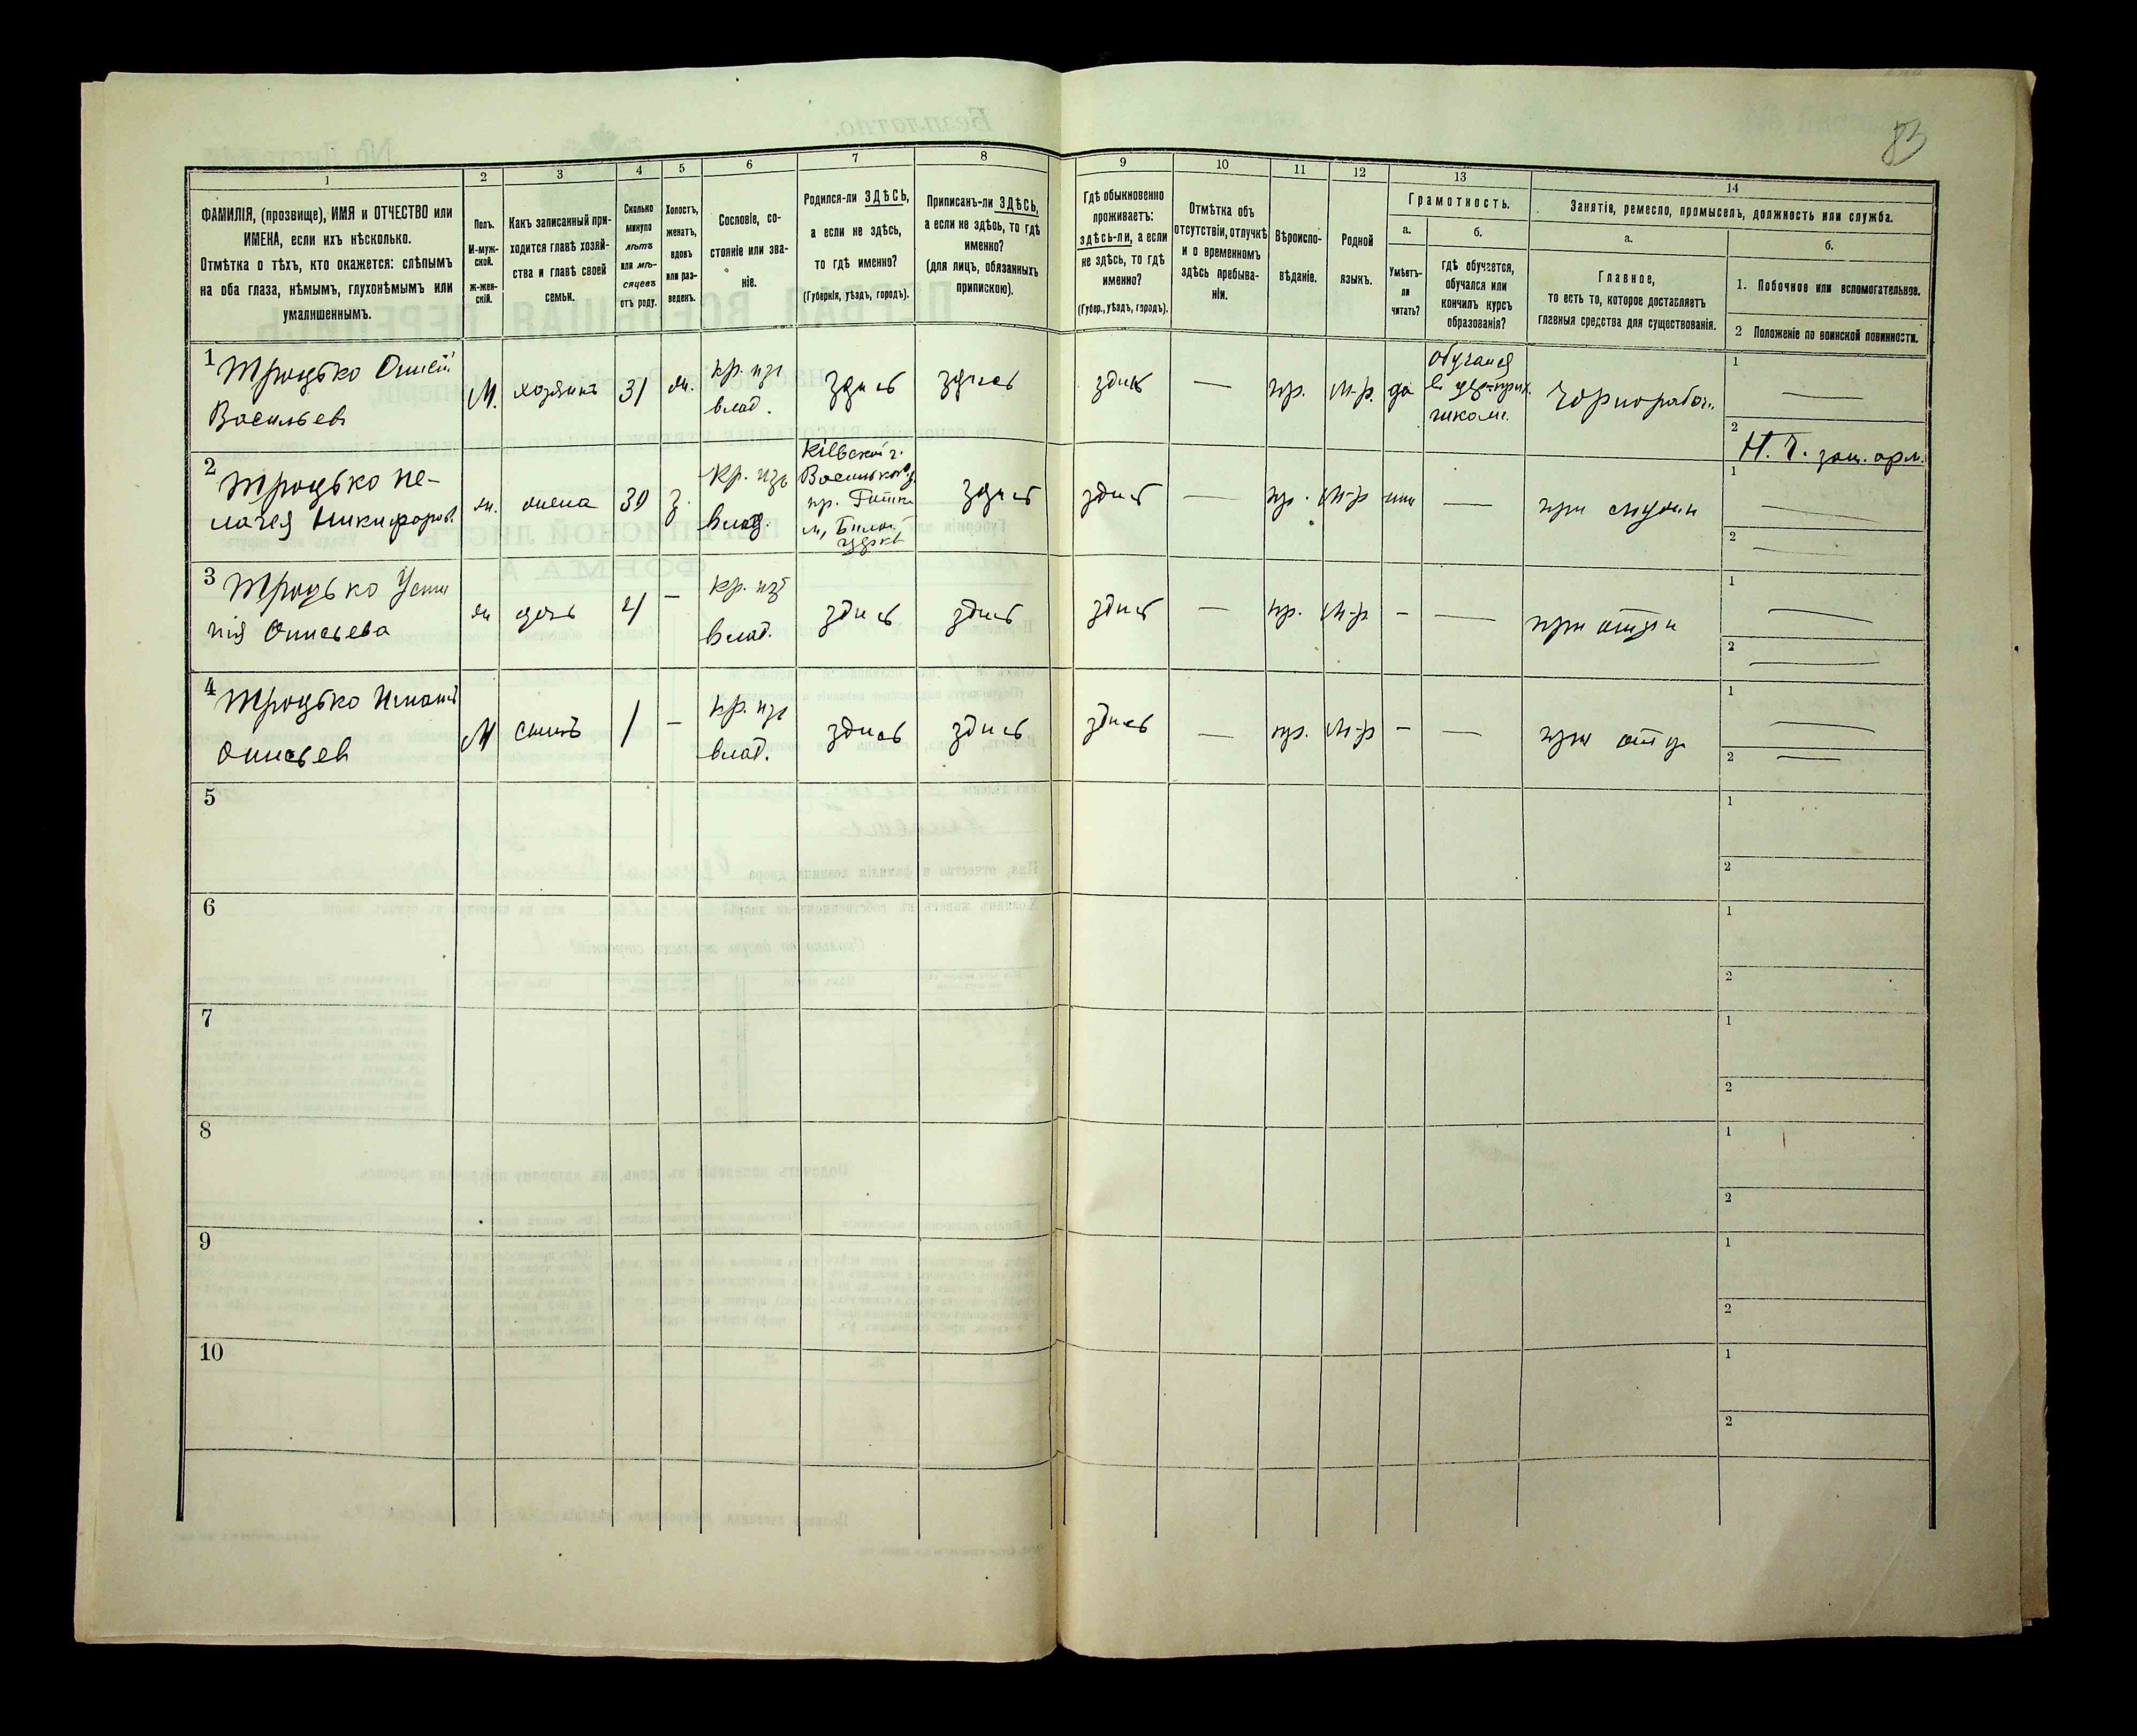 83
1
ФАМИЛІЯ, (прозвище), ИМЯ и ОТЧЕСТВО или
ИМЕНА, если ихъ нѣсколько.
Отмѣтка о тѣхъ, кто окажется: слѣпымъ
на оба глаза, нѣмымъ, глухонѣмымъ или
умалишеннымъ.
2
Полъ.
М-муж-
ской.
ж-жен-
скій.
3
Какъ записанный при-
ходится главѣ хозяй-
ства и главѣ своей
семьи.
4
Сколько
минуло
лѣтъ
или мѣ-
сяцевъ
отъ роду.
5
Холостъ,
женатъ,
вдовъ
или раз-
веденъ.
6
Сословіе, со-
стояніе или зва-
ніе.
7
Родился-ли ЗДѢСЬ,
а если не здѣсь,
то гдѣ именно?
(Губернія, уѣздъ, городъ).
8
Приписанъ-ли ЗДѢСЬ,
а если не здѣсь, то гдѣ
именно?
(для лицъ, обязанныхъ
припискою).
9
Гдѣ обыкновенно
проживаетъ:
здѣсь-ли, а если
не здѣсь, то гдѣ
именно?
(Губер., уѣздъ, городъ).
10
Отмѣтка объ
отсутствіи, отлучкѣ
и о временномъ
здѣсь пребыва-
ніи.
11
Вѣроиспо-
вѣданіе.
12
Родной
языкъ.
13
Грамотность.
а.
Умѣетъ-
ли
читать?
б.
гдѣ обучается,
обучался или
кончилъ курсъ
образованія?
14
Занятія, ремесло, промыселъ, должность или служба.
а.
Главное,
то есть то, которое доставляетъ
главныя средства для существованія.
б.
1. Побочное или вспомогательное.
2 Положеніе по воинской повинности.
1
Троцько
Васильевъ
М.
хозяинъ
31
ж.
кр. изъ
влад.
здись
здись
здись
—
пр.
м-р.
да
обучался
въ
школѣ
чорнораб.
1 —
2 Н. Ч.
2
Троцько Пе-
лагея Никифоров.
ж.
жена
30
з.
кр. изъ
влад.
Кіевской г.
Васильков. у.
м. Билая
церкв
здись
здись
—
пр.
м-р
—
при мужи
1 —
2 —
3
Троцько Усти
нія
ж
дочь
4
—
кр. изъ
влад.
здись
здись
здись
—
пр.
м-р
—
—
при отци
1 —
2 —
4
Троцько Игнатъ
М
сынъ
1
—
кр. изъ
влад.
здись
здись
здись
—
пр.
м-р
—
—
при отци
1 —
2 —
5
1
2
6
1
2
7
1
2
8
1
2
9
1
2
10
1
2